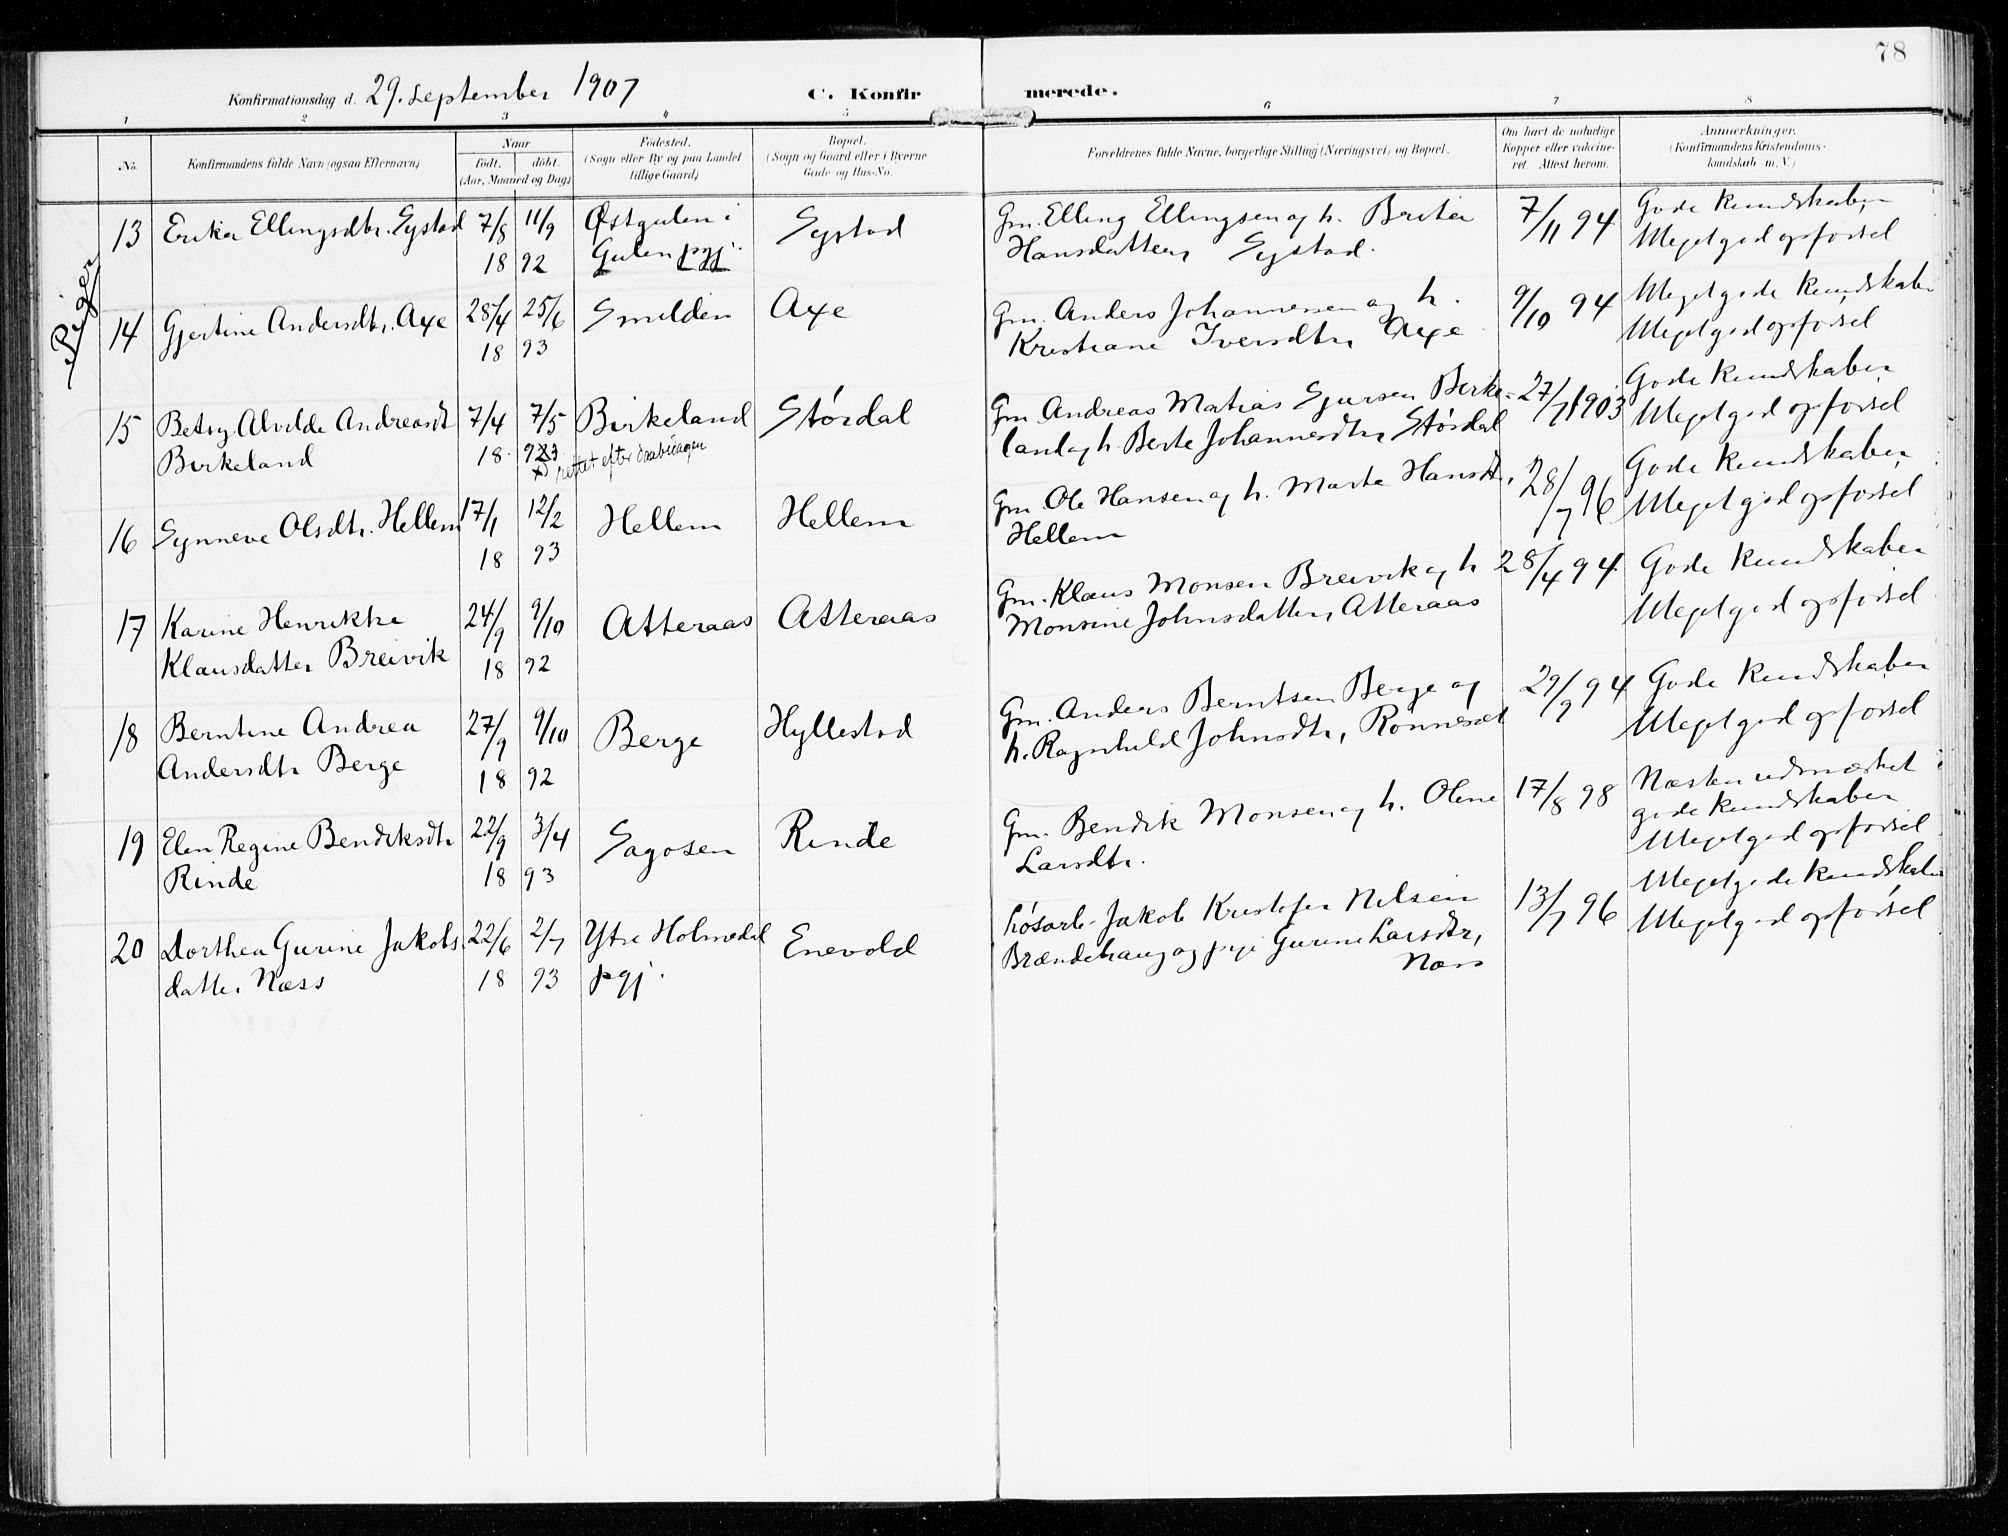 78
Konfirmationsdag d. 29. september 1907 C. Konfirmerede.
1 2 3 4 5 6 7 8
No.
Konfirmandens fulde Navn (ogsaa Efternavn)
Naar
født. døbt.
(Aar, Maaned og Dag)
Fødested.
(Sogn eller By og paa Landet
tillige Gaard)
Bopæl.
(Sogn og Gaard eller i Byerne
Gade og Hus-No.
Forældrenes fulde Navne, borgerlige Stilling (Næringsvei) og Bopæl.
Om havt de naturlige
Kopper eller vaccine-
ret Attest herom.
Anmærkninger.
(Konfirmandens Kristendoms-
kundskab m. V.)
Piger
13 Erika Ellingsdtr. Systad 7/8 11/9 Østgulen i Systad Gm. Elling Ellingsen og h. Brita 7/11 94 Gode kundskaber
18 92 Gulen pgj. Hansdatter, Systad. Meget god opførsel
14 Gjertine Andersdtr. Axe 28/4 25/6 Smilden Axe Gm. Anders Johannesen og h. 9/10 94 Meget gode kundskaber
18 93 Kristiane Iversdtr, Axe Meget god opførsel
15 Betsy Alvilde Andreasdt 7/4 7/5 Birkeland Størdal Gm Andreas Matias Sjursen Birke- 27/7 1903 Gode kundskaber
Birkeland 18 93 rettet efter daabsdagen land og h. Berte Johannesdtr, Størdal Meget god opførsel
16 Synneve Olsdtr. Hellem 17/1 12/2 Hellem Hellem Gm. Ole Hansen og h. Marte Hansdt, 28/7 96 Gode kundskaber
18 93 Hellem Meget god opførsel
17 Karine Henrikke 24/9 9/10 Atteraas Atteraas Gm. Klaus Monsen Breivik og h 28/4 94 Gode kundskaber
Klausdatter Breivik 18 92 Monsine Johnsdatter, Atteraas Meget god opførsel
18 Berntine Andrea 27/9 9/10 Berge Hyllestad Gm. Anders Berntsen Berge og 29/9 94 Gode kundskaber
Andersdtr Berge 18 92 h. Ragnhild Johnsdtr, Rønneset Meget god opførsel
19 Elen Regine Bendiksdtr 22/9 3/4 Sagosen Rinde Gm. Bendik Monsen og h. Oline 17/8 98 Næsten udmærket
Rinde 18 93 Larsdtr. gode kundskaber
Meget god opførsel
20 Dorthea Gurine Jakobs- 22/6 2/7 Ytre Holmedal Enevold Løsarb. Jakob Kristofer Nilsen 13/7 96 Meget gode kundskaber
datter Næss 18 93 pgj. Brændehaug og pige Gurine Larsdtr, Meget god opførsel
Næss